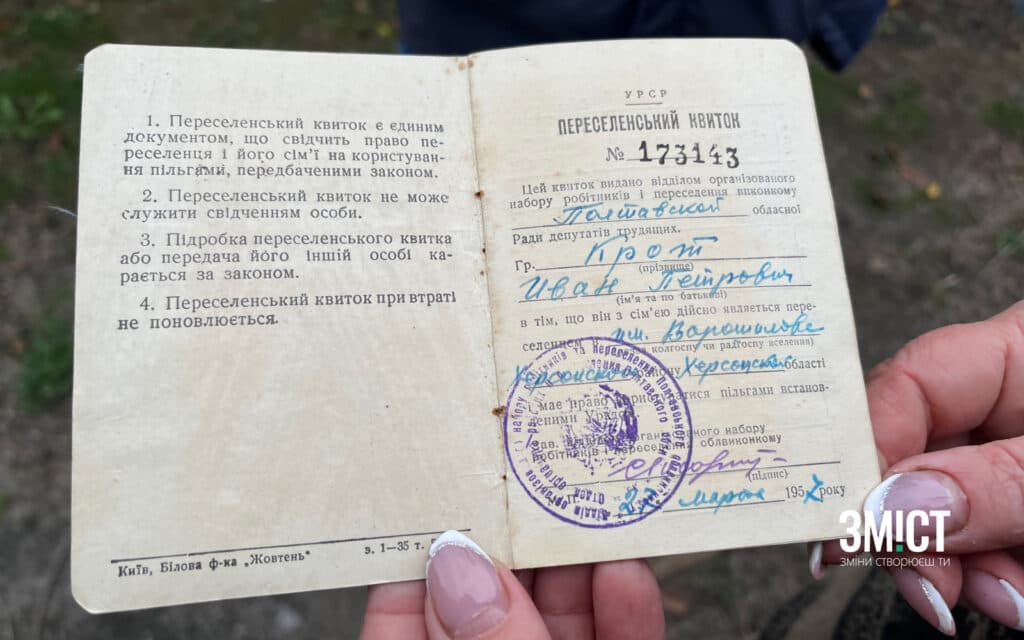 1. Переселенський квиток є єдиним
документом, що свідчить право пе-
реселенця і його сім'ї на користуван-
ня пільгами, передбаченими законом.
2. Переселенський квиток не може
служити свідченням особи.
3. Підробка переселенського квитка
або передача його іншій особі ка-
рається за законом.
4. Переселенський квиток при втраті
не поновлюється.
Київ, Білова ф-ка „Жовтень" з. 1—35 т.
УРСР
ПЕРЕСЕЛЕНСЬКИЙ КВИТОК
№ 173143
Цей квиток видано відділом організованого
набору робітників і переселення виконкому
Полтавской обласної
Ради депутатів трудящих.
Гр. Крот
(прізвище)
Иван Петрович
(ім'я та по батькові)
в тім, що він з сім'єю дійсно являється пере-
селенцем им. Ворошилова
колгоспу чи радгоспу вселення)
Херсонского району Херсонской області
має право користуватися пільгами встанов-
леними Урядом
Зав. відділом організованого набору
робітників і переселення облвиконкому
(підпис)
марта 1957 року
ЗМІСТ
ЗМІНИ СТВОРЮЄШ ТИ